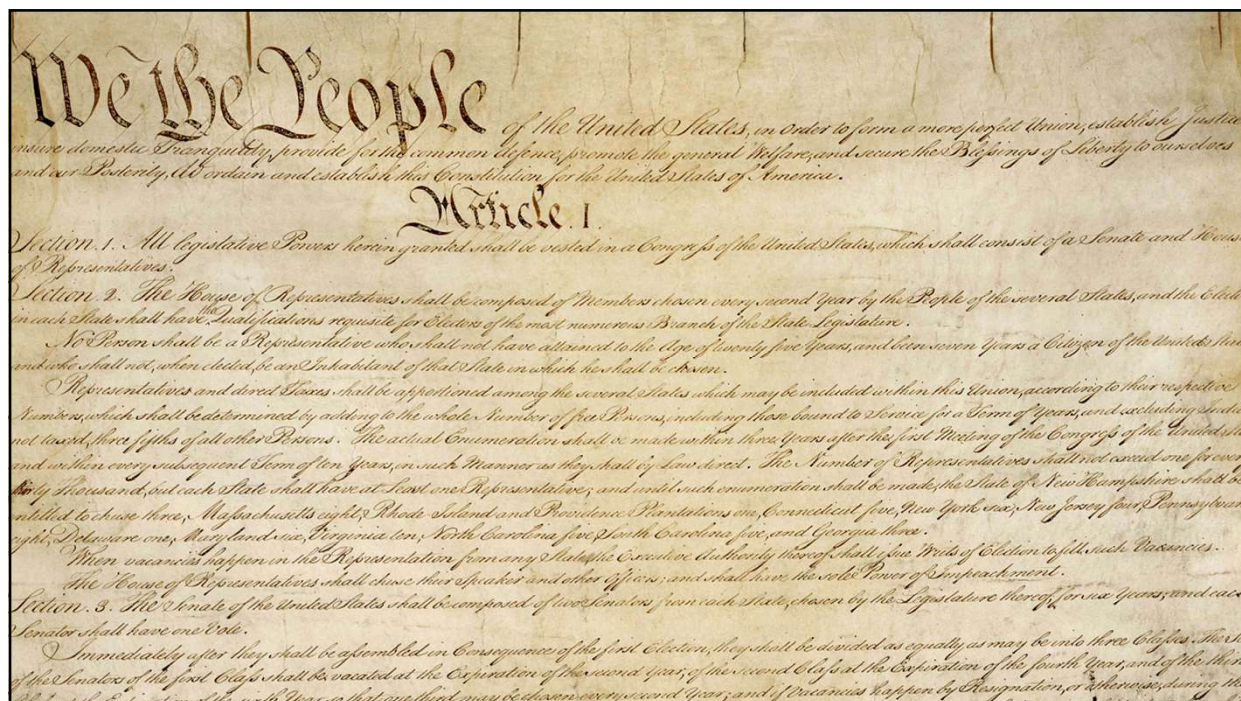 We the People of the United States, in Order to form a more perfect Union, establish Justice,
insure domestic Tranquility, provide for the common defence, promote the general Welfare, and secure the Blessings of Liberty to ourselves
and our Posterity, do ordain and establish this Constitution for the United States of America.
Article. I.
Section. 1. All legislative Powers herein granted shall be vested in a Congress of the United States, which shall consist of a Senate and House
of Representatives.
Section. 2. The House of Representatives shall be composed of Members chosen every second Year by the People of the several States, and the Electo
in each State shall have the Qualifications requisite for Electors of the most numerous Branch of the State Legislature.
No Person shall be a Representative who shall not have attained to the Age of twenty five Years, and been seven Years a Citizen of the United States
and who shall not, when elected, be an Inhabitant of that State in which he shall be chosen.
Representatives and direct Taxes shall be apportioned among the several States which may be included within this Union, according to their respective
Numbers, which shall be determined by adding to the whole Number of free Persons, including those bound to Service for a Term of Years, and excluding India
not taxed, three fifths of all other Persons. The actual Enumeration shall be made within three Years after the first Meeting of the Congress of the United Sta
and within every subsequent Term of ten Years, in such Manner as they shall by Law direct. The Number of Representatives shall not exceed one for every
thirty Thousand, but each State shall have at Least one Representative; and until such enumeration shall be made, the State of New Hampshire shall be
entitled to chuse three, Massachusetts eight, Rhode Island and Providence Plantations one, Connecticut five, New York six, New Jersey four, Pennsylvan
eight, Delaware one, Maryland six, Virginia ten, North Carolina five, South Carolina five, and Georgia three.
When vacancies happen in the Representation from any State, the Executive Authority thereof shall issue Writs of Election to fill such Vacancies.
the House of Representatives shall chuse their Speaker and other Officers; and shall have the sole Power of Impeachment.
Section. 3. The Senate of the United States shall be composed of two Senators from each State, chosen by the Legislature thereof, for six Years; and each
Senator shall have one Vote.
Immediately after they shall be assembled in Consequence of the first Election, they shall be divided as equally as may be into three Classes. The Se
of the Senators of the first Class shall be vacated at the Expiration of the second Year, of the second Class at the Expiration of the fourth Year, and of the third
sixth Year, so that one third may be chosen every second Year; and if Vacancies happen by Resignation, or otherwise, during the